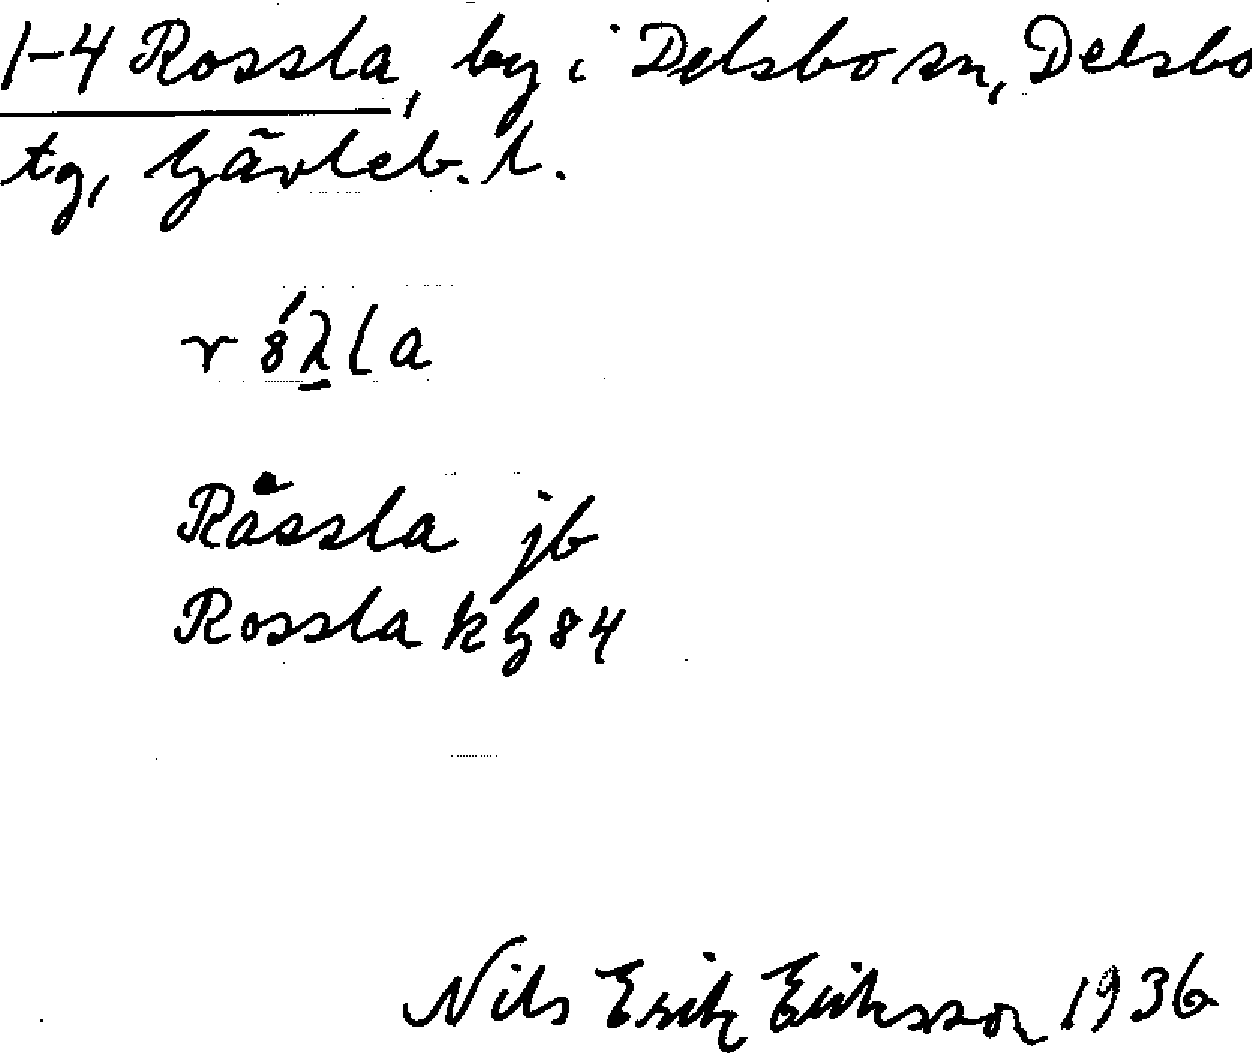 1-4 Rossla, by i Delsbo sn, Delsbo
tg, Gävleb. l.
Råssla jb
Rossla kG 84
Nils Erik Eriksson 1936